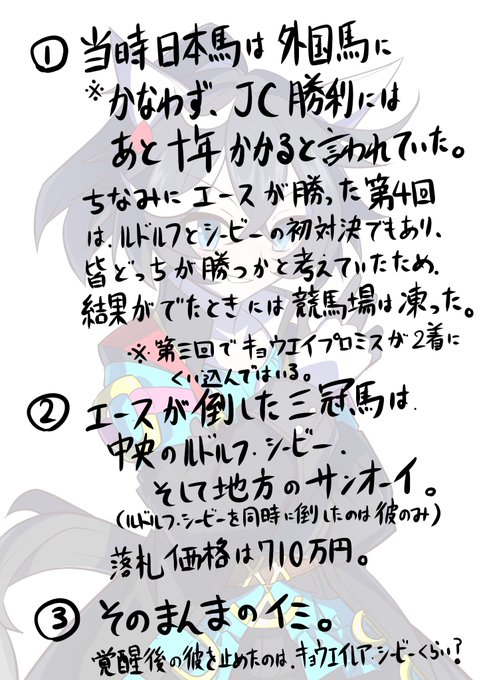 ① 当時日本馬は外国馬に
※かなわず、JC勝利には
あと十年かかると言われていた。
ちなみにエースが勝った第4回
は、ルドルフとシービーの初対決でもあり、
皆どっちが勝つかと考えていたため、
結果がでたときには競馬場は凍った。
※第三回でキョウエイプロミスが2着に
くい込んではいる。
② エースが倒した三冠馬は
中央のルドルフ・シービー、
そして地方のサンオーイ。
(ルドルフ・シービーを同時に倒したのは彼のみ)
落札価格は710万円。
③ そのまんまのイミ。
覚醒後の彼を止めたのは、キョウエイレア・シービーくらい?